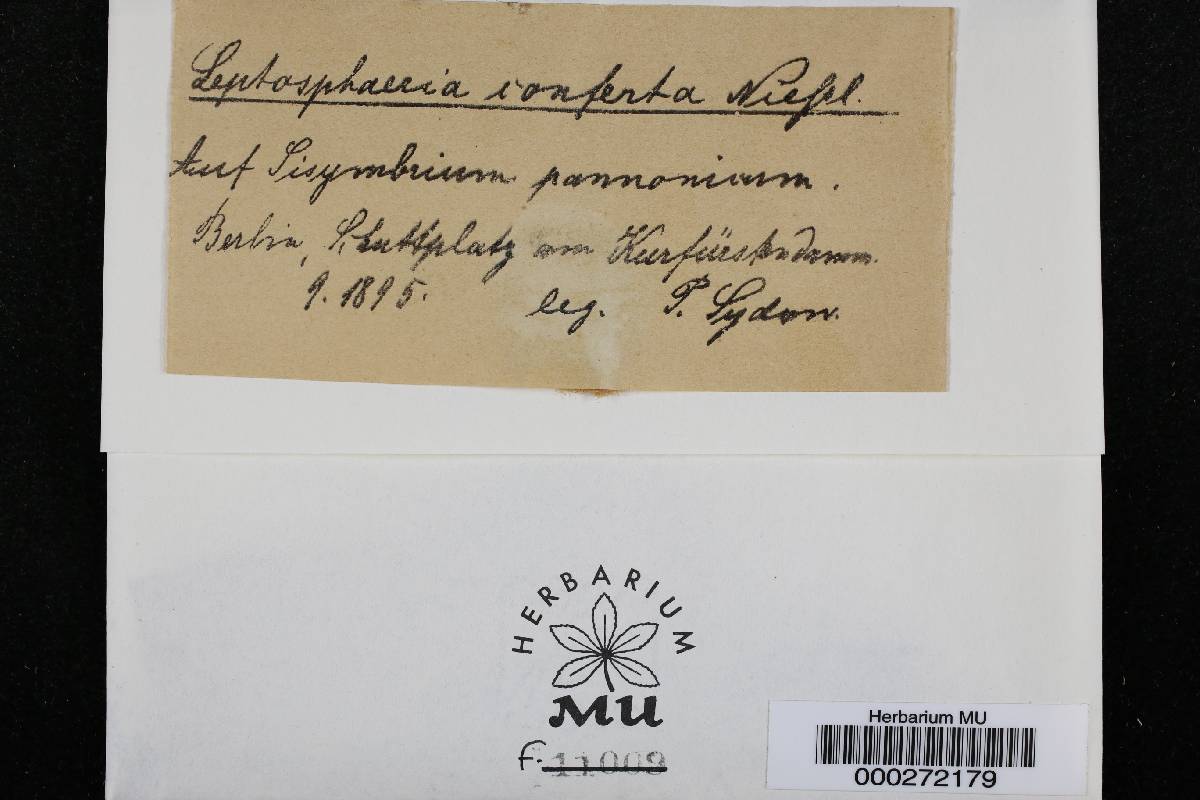 Leptosphaeria conferta Niessl.
Auf Sisymbrium pannonicum.
Berlin, Schuttplatz am Kurfürstendamm.
9. 1895. leg. P. Sydow.
HERBARIUM
MU
F. 11003
Herbarium MU
000272179